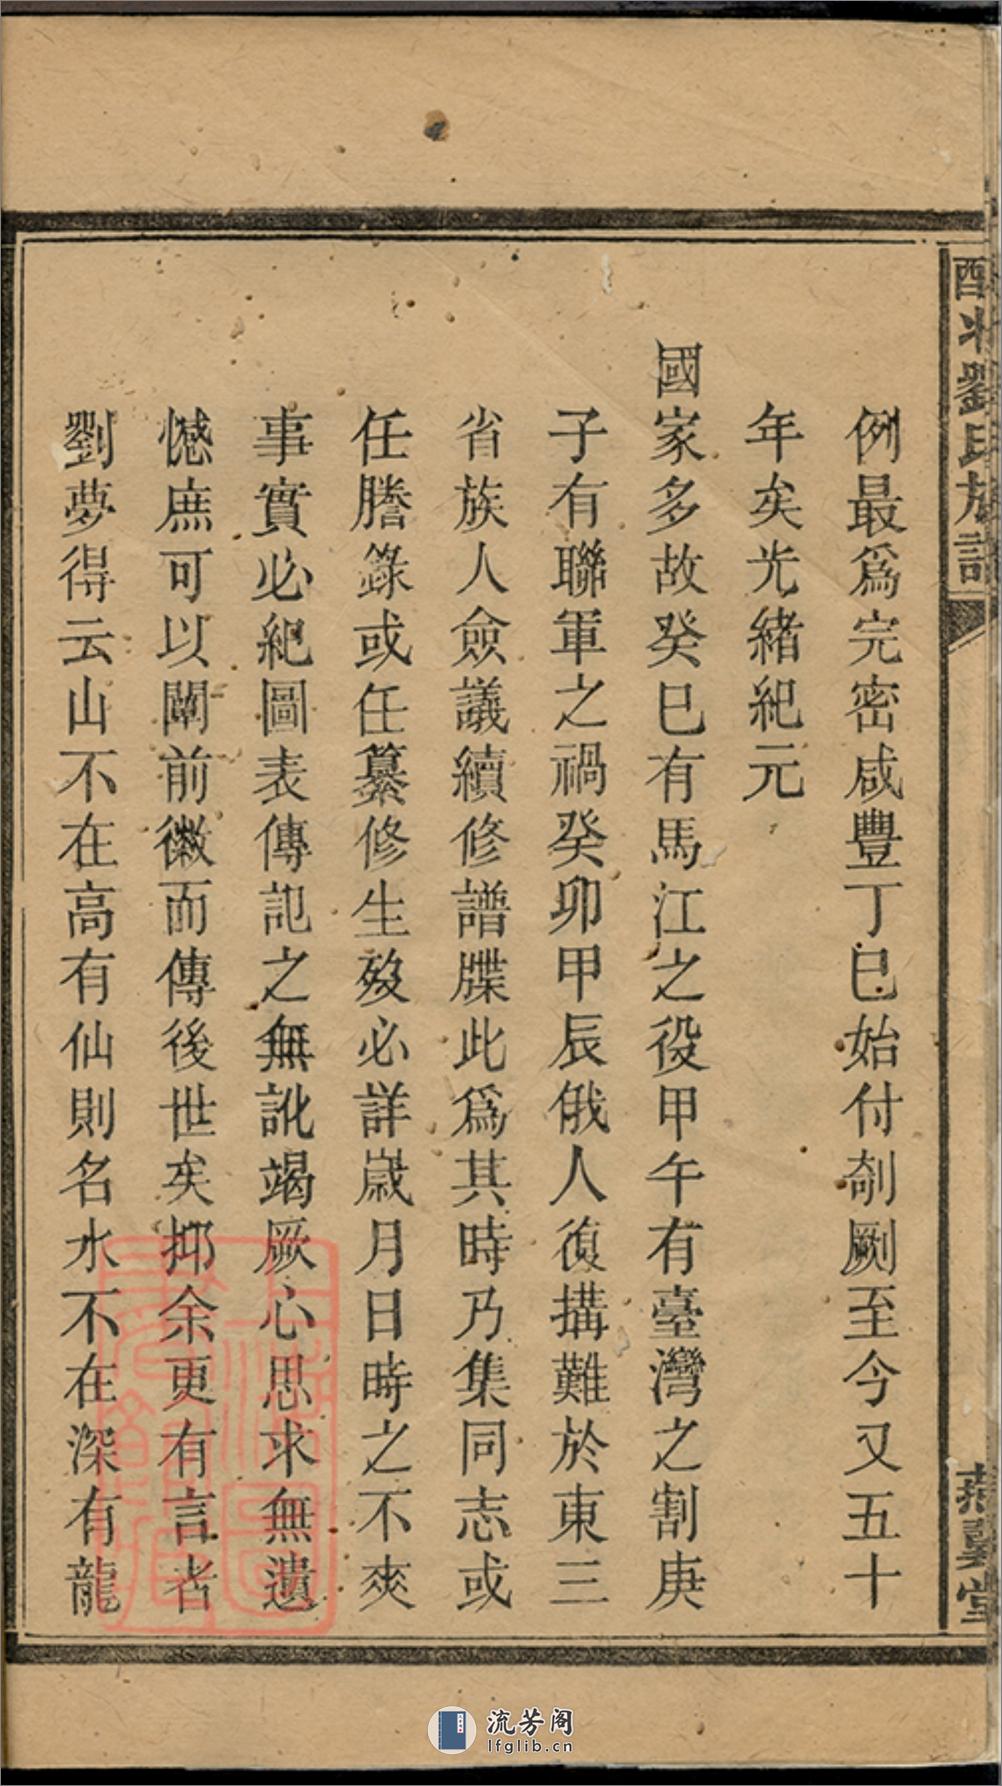 酉州劉氏族譜
燕翼堂
例最爲完密咸豐丁巳始付剞劂至今又五十
年矣光緒紀元
國家多故癸巳有馬江之役甲午有臺灣之割庚
子有聯軍之禍癸卯甲辰俄人復搆難於東三
省族人僉議續修譜牒此爲其時乃集同志或
任謄錄或任纂修生歿必詳歲月日時之不爽
事實必紀圖表傳記之無訛竭厥心思求無遺
憾庶可以闡前徽而傳後世矣抑余更有言者
劉夢得云山不在高有仙則名水不在深有龍
上海圖書館藏
流芳阁
lfglib.cn